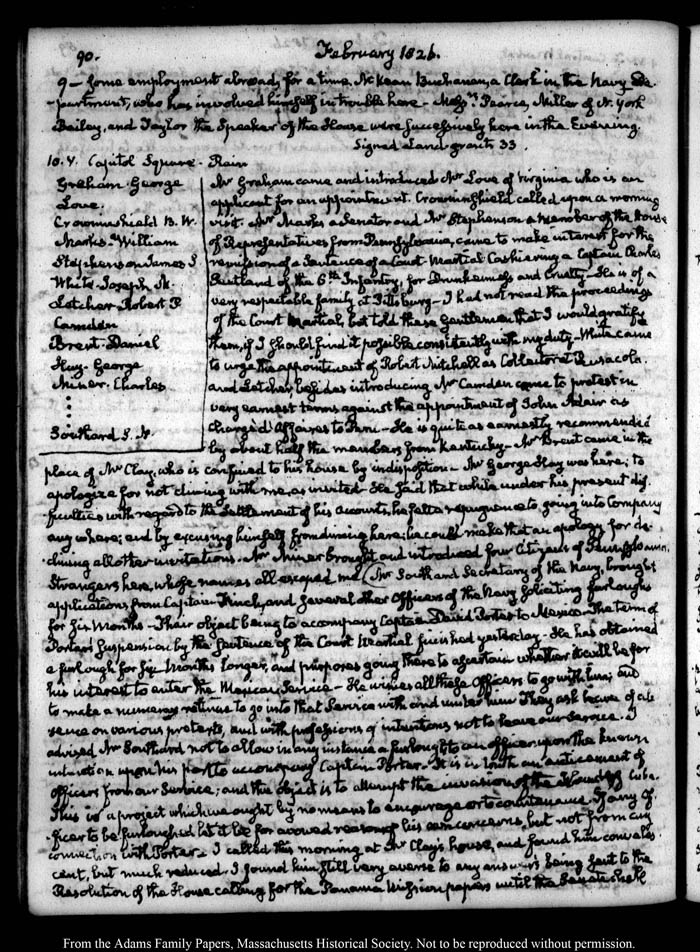 90. February 1826.
9 — some employment abroad, for a time. McKean Buchanan, a Clerk in the Navy De-
-partment, who has involved himself in trouble here — Messrs. Pearce, Miller of N. York
Bailey, and Taylor the Speaker of the House were successively here in the Evening.
Signed Land grants 33.
10. V. Capitol Square. Rain
Graham George
Love.
Crowninshield B. W.
Marks. William
Stephenson James S.
White Joseph M.
Letcher Robert P
Camden
Brent. Daniel
Hay. George
Miner. Charles
Southard S. L.
Mr. Graham came and introduced Mr. Love of Virginia who is an
applicant for an appointment. Crowninshield called upon a morning
visit. Mr. Marks a Senator and Mr. Stephenson a Member of the House
of Representatives from Pennsylvania, came to make interest for the
remission of a Sentence of a Court-Martial Cashiering a Captain Charles
Pentland of the 6th Infantry, for Drunkenness and Cruelty — He is of a
very respectable family at Pittsburg — I had not read the proceedings
of the Court Martial, but told these Gentlemen that I would gratify
them, if I should find it possible consistently with my duty — White came
to urge the appointment of Robert Mitchell as Collector at Pensacola.
and Letcher, besides introducing Mr. Camden came to protest in
very earnest terms against the appointment of John Adair as
Chargé d'Affaires to Peru — He is quite as earnestly recommended
by about half the members from Kentucky — Mr. Brent came in the
place of Mr. Clay, who is confined to his house by indisposition — Mr. George Hay was here; to
apologize for not dining with me, as invited — He said that while under his present dif-
ficulties with regard to the settlement of his accounts, he felt a repugnance to going into Company
any where; and by excusing himself from dining here, he could make that an apology for de-
clining all other invitations. Mr. Miner brought and introduced four Citizens of Pennsylvania,
Strangers here, whose names all escaped me. Mr. Southard Secretary of the Navy, brought
applications from Captain Finch, and several other Officers of the Navy soliciting furloughs
for six Months — Their object being to accompany Captain David Porter to Mexico — The term of
Porter's suspension by the Sentence of the Court Martial finished yesterday — He has obtained
a furlough for six Months longer, and purposes going there to ascertain whether it will be for
his interest to enter the Mexican Service — He wishes all these Officers to go with him; and
to make a numerous retinue to go into that Service with and under him They ask leave of ab-
sence on various pretexts, and with professions of intentions not to leave our service. I
advised Mr. Southard not to allow in any instance a furlough to an officer upon the known
intention upon his part to accompany Captain Porter. It is in truth an enticement of
officers from our Service; and the object is to attempt the invasion of the Island of Cuba.
This is a project which we ought by no means to encourage or to countenance. If any of-
ficer to be furloughed let it be for avowed reasons of his own concerns, but not from any
connection with Porter. I called this morning at Mr. Clay's house, and found him convales-
cent, but much reduced. I found him still very averse to any answers being sent to the
Resolution of the House calling for the Panama Mission papers until the Senate shall
From the Adams Family Papers, Massachusetts Historical Society. Not to be reproduced without permission.